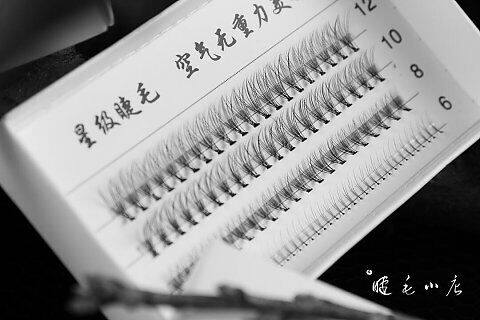 星级睫毛 空气无重力
12
10
8
6
睫毛小店